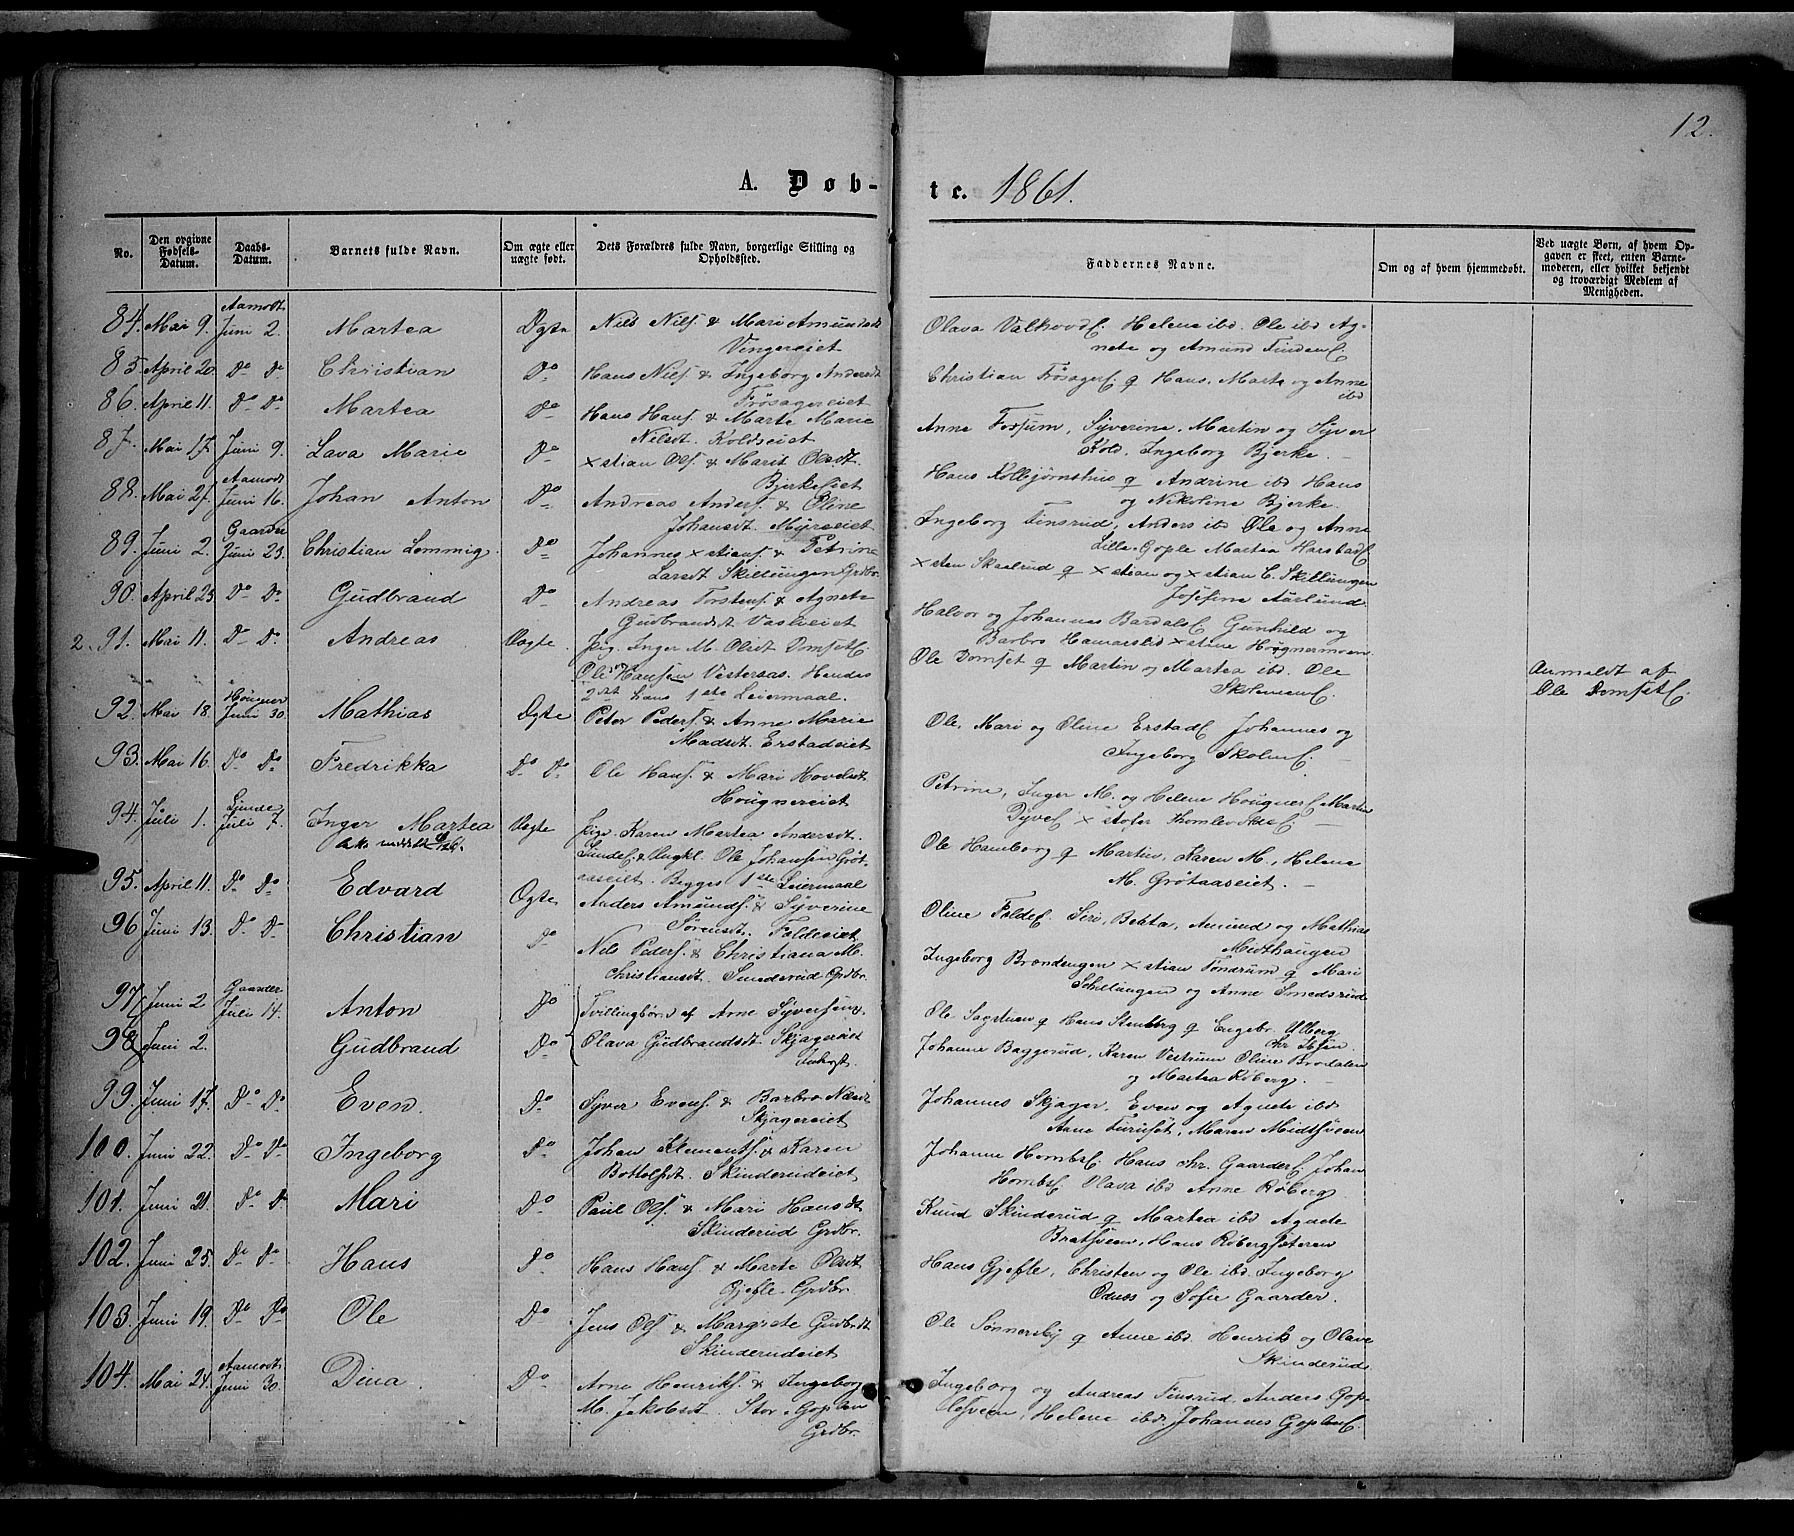 12.
A. Døb-
te. 1861.
No.
Den opgivne Fødsels-Datum.
Daabs-Datum.
Barnets fulde Navn.
Om ægte eller uægte født.
Dets Forældres fulde Navn, borgerlige Stilling og Opholdssted.
Faddernes Navne.
Om og af hvem hjemmedøbt.
Ved uægte Børn, af hvem Opgaven er skeet, enten Barnemoderen, eller hvilket bekjendt og troværdigt Medlem af Menigheden.
84. Mai 9. Aamodt Juni 2. Martea Ægte Nils Nilss. & Mari Amundsdt
Vingereiet
Olava Valhovds. Helene ibd. Ole ibd Ag-
nete og Amund Finden
85. April 20. Do Do Christian Do Hans Nilss. & Ingeborg Andersdt
Frøsagereiet
Christian Frøsager q Hans, Marte og Anne
ibd
86. April 11. Do Do Martea Do Hans Hanss. & Marte Marie
Nilsdt. Koldseiet
Anne Fossum, Syverine, Martin og Syver
Kold. Ingeborg Bjerke.
87. Mai 17. Juni 9. Lava Marie Do xstian Ols. & Marit Olsdt.
Bjerkeeiet
Hans Kolbjørnshus q Andrine ibd Hans
og Nikoline Bjerke.
88. Mai 27. Aamodt Juni 16. Johan Anton Do Andreas Anders. & Oline
Johansdt. Myrseiet
Ingeborg Finsrud, Anders ibd Ole og Anne
Lille-Gople Martea Harstad
89. Juni 2. Gaarder Juni 23. Christian Lemmig. Do Johannes xstians. & Petrine
Larsdt Skillungen Grdbr.
xsten Skaalrud q xstian og xstian C. Skillungen
Josefine Aarlund
90. April 25. Do Do Gudbrand Do Andreas Torstens. & Agnete
Gudbrandsdt Vaslieiet
Halvor og Johannes Bardals. Gunhild og
Barbro Hamarslid xstine Høugnermoen
2. 91. Mai 11. Do Do Andreas Uægte. Pig. Inger M. Olsdt Domset
Ole Hansen Vesteraas. Hendes
2det hans 1ste Leiermaal.
Ole Domset q Martin og Martea ibd. Ole
Skolmen
Anmeldt af
Ole Domset
92. Mai 18. Høugner Juni 30. Mathias Ægte Peter Peders. & Anne Marie
Madsdt. Erstadeiet
Ole, Mari og Oline Erstad Johannes og
Ingeborg Skolm
93. Mai 16. Do Do Fredrikka Do Do Ole Hans. & Mari Hovelsdt.
Høugnereiet
Petrine, Inger M. og Helene Høugner Martin
Dyve xstofer
94. Juli 1. Lunde Juli 7. Inger Martea Uægte Pige Karen Martea Andersdt.
Lunde & Ungkl. Ole Johansen Grøt-
aaseiet. Begges 1ste Leiermaal
Ole Hamborg q Martin, Karen M., Helene
M. Grøtaaseiet.
95. April 11. Do Do Edvard Ægte Anders Amunds. & Syverine
Sørensdt. Foldeeiet
Oline Folde. Seri, Behta, Amund og Mathias
Midthaugen
96 Juni 13. Do Do Christian Do Nils Peders. & Christiana M.
Christiansdt. Smedsrud Grdbr.
Ingeborg Brendengen xstian Tondrum q Mari
Schillungen og Anne Smedsrud
97 Juni 2 Gaarder Juli 14. Anton Do Tvillingbørn af Arne Syversen
Ole Sagstuen q Hans Stenberg q Engebr. Ulberg
98 Juni 2. Gudbrand Do Olava Gudbrandsdt. Skjagereiet
Inderst.
Johanne Baggerud, Karen Vestrum Oline Brodalen
og Martea Røberg.
99. Juni 17. Do Do Even. Do Syver Evens. & Barbro Nilsdt
Skjagereiet
Johannes Skjager, Even og Agnete ibd
Anne Furuset, Maren Midtsveen
100. Juni 22. Do Do Ingeborg Do Johan Klements. & Karen
Bottolfsdt. Skinderudeiet
Johanne Homb. Hans Chr. Gaarder Johan
Homb Olava ibd Anne Røberg.
101. Juni 21. Do Do Mari Do Paul Ols. & Mari Hansdt
Skinderud Grdbr.
Knud Skinderud q Martea ibd Agnete
Bratsveen, Hans Røbergsæteren
102. Juni 25. Do Do Hans Do Hans Hans. & Marte Olsdt
Gjefle. Grdbr.
Hans Gjefle, Christen og Ole ibd. Ingeborg
Odnes og Sofie Gaarder.
103. Juni 19. Do Do Ole Do Jens Ols. & Margrete Gudbrdt
Skinderudeiet
Ole Sønnersby q Anne ibd Henrik og Olave
Skinderud.
104. Mai 24. Aamodt Juni 30. Dina. Do Arne Henriks. & Ingeborg
M. Jakobsdt. Stor-Goplen
Grdbr.
Ingeborg og Andreas Finsrud, Anders Gop-
lesveen, Helene ibd. Johannes Goplen